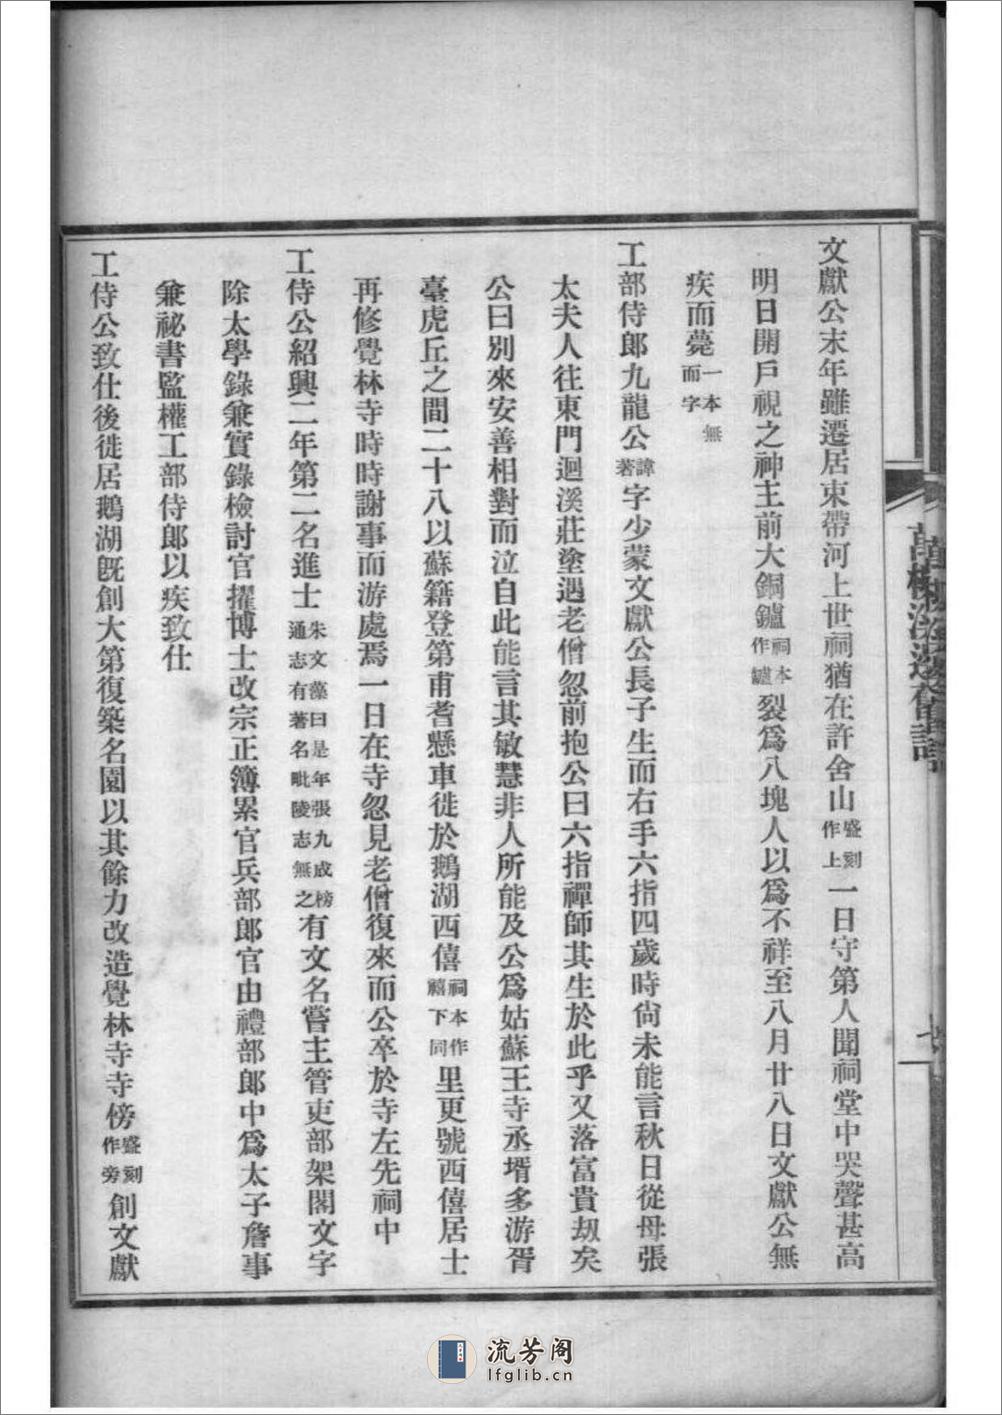 文獻公末年雖遷居束帶河上世祠猶在許舍山盛刻作上一日守第人聞祠堂中哭聲甚高
明日開戶視之神主前大銅鑪祠本作罏裂爲八塊人以爲不祥至八月廿八日文獻公無
疾而薨一本無而字
工部侍郎九龍公諱著字少蒙文獻公長子生而右手六指四歲時尙未能言秋日從母張
太夫人往東門迴溪莊塗遇老僧忽前抱公曰六指禪師其生於此乎又落富貴刼矣
公曰別來安善相對而泣自此能言其敏慧非人所能及公爲姑蘇王寺丞壻多游胥
臺虎丘之間二十八以蘇籍登第甫耆懸車徙於鵝湖西僖祠本作禧下同里更號西僖居士
再修覺林寺時時謝事而游處焉一日在寺忽見老僧復來而公卒於寺左先祠中
工侍公紹興二年第二名進士朱文藻曰是年張九成榜通志有著名毗陵志無之有文名嘗主管吏部架閣文字
除太學錄兼實錄檢討官擢博士改宗正簿累官兵部郎官由禮部郎中爲太子詹事
兼祕書監權工部侍郎以疾致仕
工侍公致仕後徙居鵝湖旣創大第復築名園以其餘力改造覺林寺寺傍盛刻作旁創文獻
萬柳溪邊舊話
流芳阁
lfglib.cn